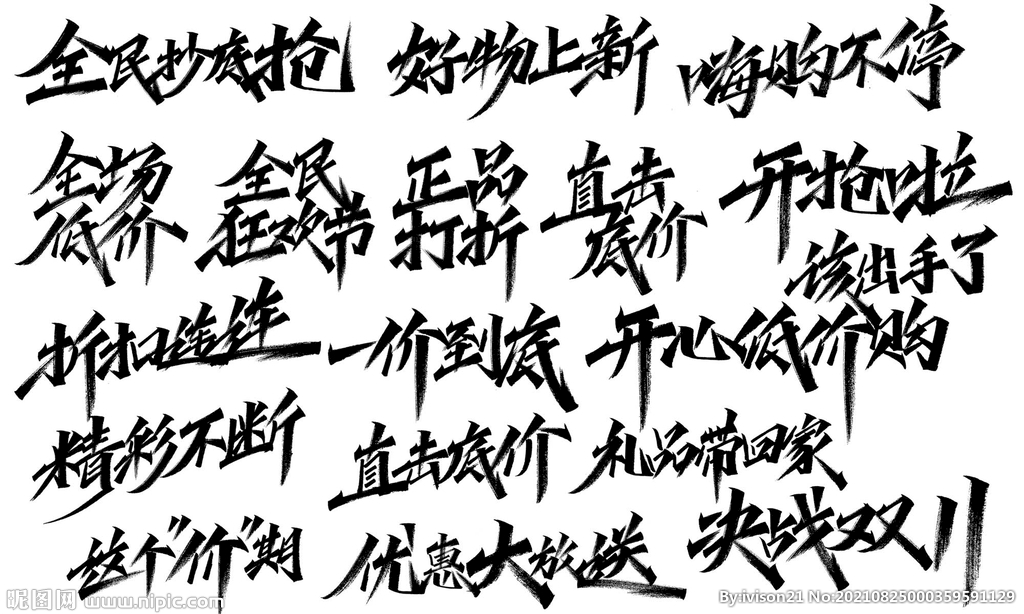 全民抄底抢
好物上新
嗨购不停
全场
低价
全民
狂欢节
正品
打折
直击
底价
开抢啦
该出手了
折扣连连
一价到底
开心低价购
精彩不断
直击底价
礼品带回家
这个"价"期
优惠大放送
决战双11
昵图网 www.nipic.com
By:ivison21 No:20210825000359591129